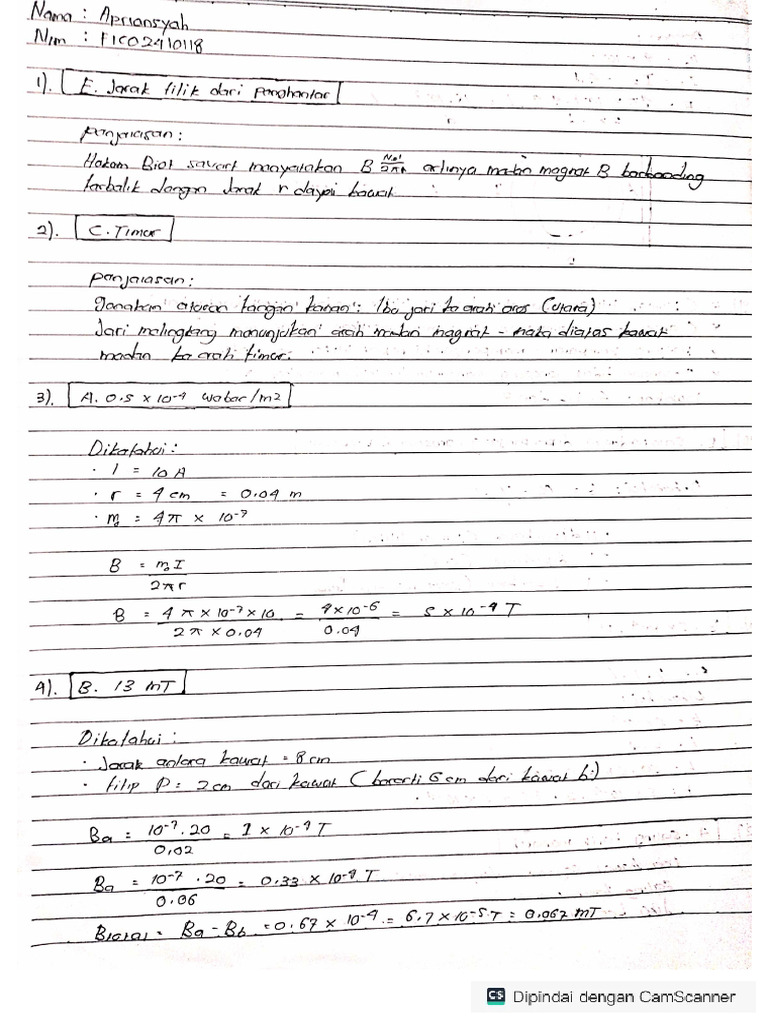 Nama : Apriansyah
Nim : F1C02410118
1). E. Jarak titik dari Penghantar
Penjelasan :
Hukum Biot savart menyatakan B N₀I/2πr artinya medan magnet B berbanding
terbalik dengan Jarak r dari kawat
2). C. Timur
Penjelasan :
Gunakan aturan tangan kanan : Ibu jari ke arah arus (utara)
Jari melingkang menunjukan arah medan magnet - maka diatas kawat
medan ke arah timur.
3). A. 0.5 x 10⁻⁴ weber/m2
Diketahui :
· I = 10 A
· r = 4 cm = 0.04 m
· m₀ = 4π x 10⁻⁷
B = m₀I
2πr
B = 4π x 10⁻⁷ x 10 = 4x10⁻⁶ = 5 x 10⁻⁴ T
2π x 0.04 0.04
4). B. 13 mT
Diketahui :
· Jarak antara kawat = 8 cm
· titip P = 2 cm dari kawat (berarti 6 cm dari kawat b.)
Ba = 10⁻⁷ . 20 = 1 x 10⁻⁴ T
0,02
Ba = 10⁻⁷ . 20 = 0.33 x 10⁻⁴ T
0.06
Btotal = Ba - Bb = 0.67 x 10⁻⁴ = 6.7 x 10⁻⁵ T = 0.067 mT
CS Dipindai dengan CamScanner